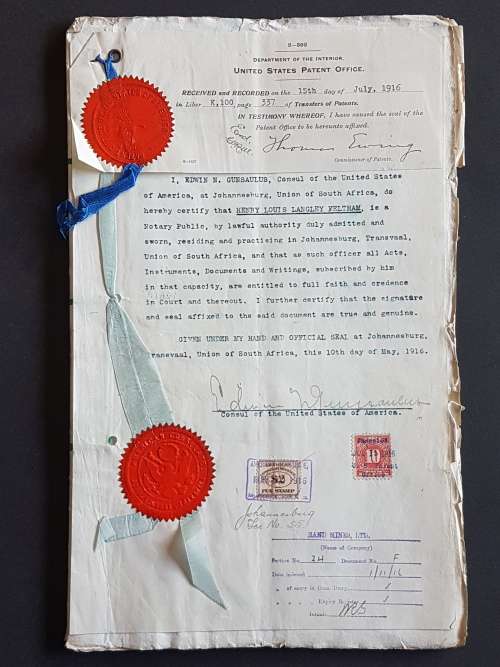 2-209
DEPARTMENT OF THE INTERIOR.
UNITED STATES PATENT OFFICE.
RECEIVED and RECORDED on the 15th day of July, 1916
in Liber K,100 page 337 of Transfers of Patents.
IN TESTIMONY WHEREOF, I have caused the seal of the
Patent Office to be hereunto affixed.
Thomas Ewing
Commissioner of Patents.
I, EDWIN N. GUNSAULUS, Consul of the United States
of America, at Johannesburg, Union of South Africa, do
hereby certify that HENRY LOUIS LANGLEY FELTHAM, is a
Notary Public, by lawful authority duly admitted and
sworn, residing and practising in Johannesburg, Transvaal,
Union of South Africa, and that as such officer all Acts,
Instruments, Documents and Writings, subscribed by him
in that capacity, are entitled to full faith and credence
in Court and thereout. I further certify that the signature
and seal affixed to the said document are true and genuine.
GIVEN UNDER MY HAND AND OFFICIAL SEAL at Johannesburg,
Transvaal, Union of South Africa, this 10th day of May, 1916.
Edwin N. Gunsaulus
Consul of the United States of America.
$2
FEE STAMP
10
Johannesburg
RAND MINES, LTD.
(Name of Company)
Section No. 2H Document No. F
Date indexed 1/11/16
of entry in Com. Diary
Expiry